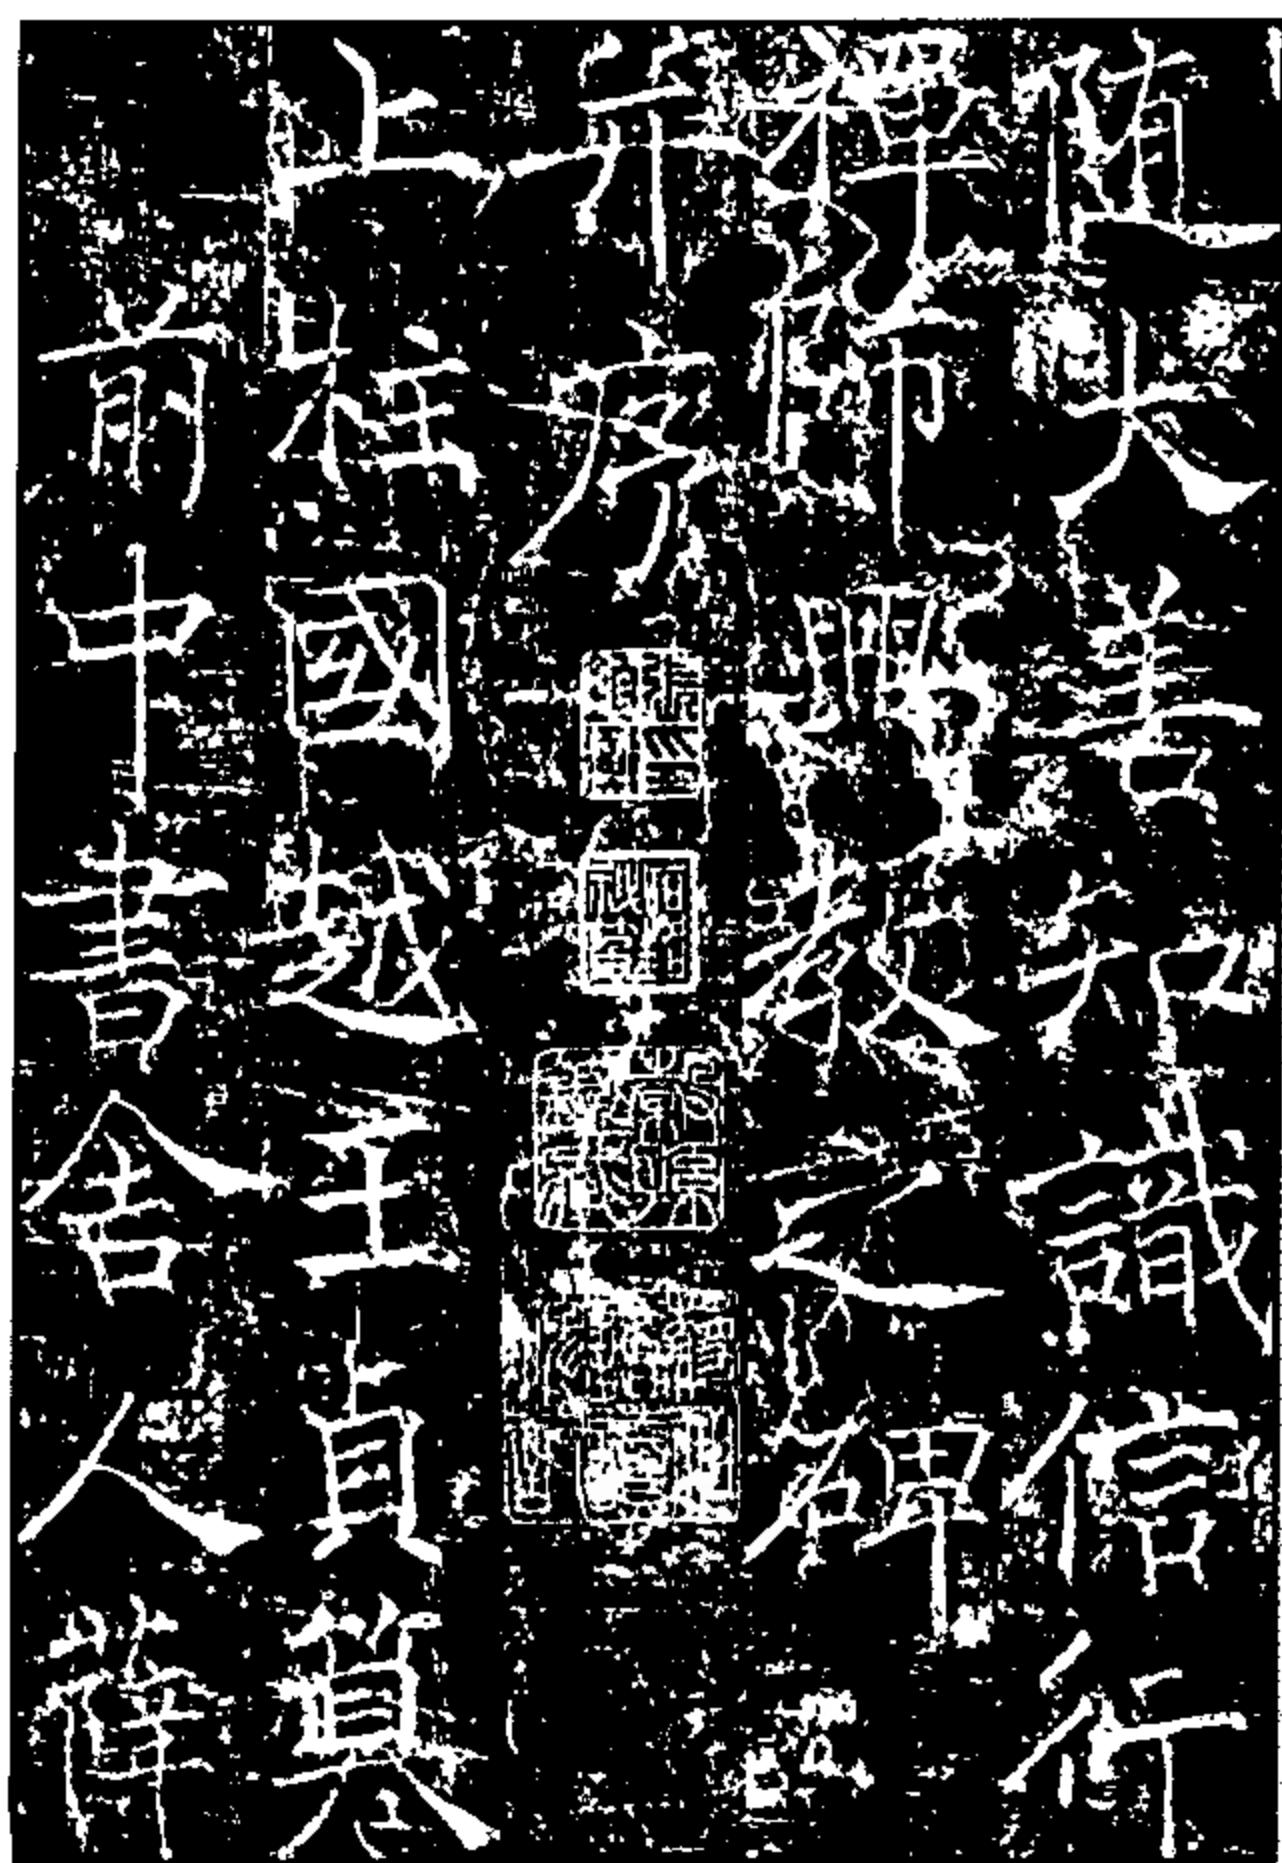 隨大善知識信行
禪師興教之碑
并序
上柱國越王貞篹
前中書舍人薛